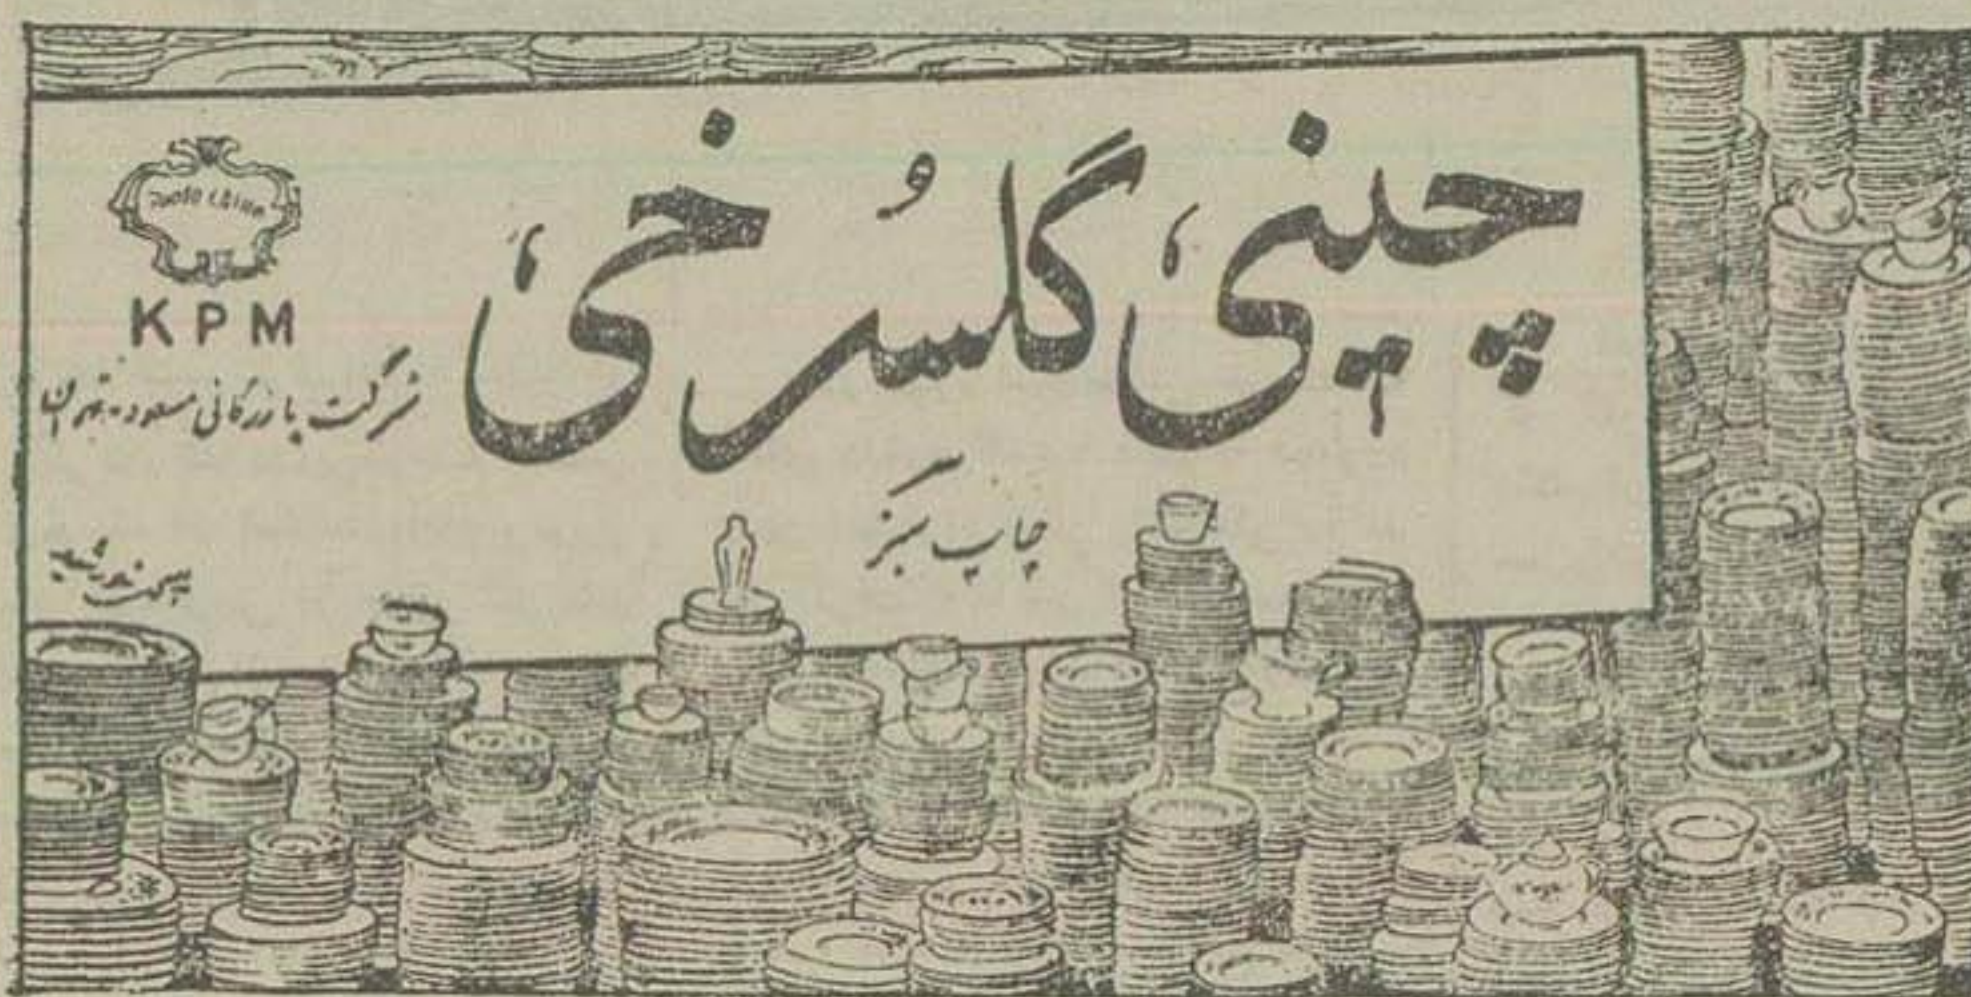 چینیِ گلسُرخی
چاپ سبز
KPM
شرکت بازرگانی مسعود - تهران